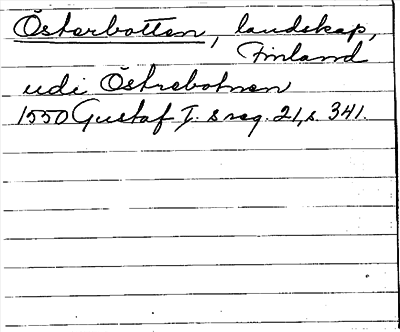 Österbotten, landskap,
Finland
udi Östrebotnen
1550 Gustaf I:s reg. 21, s. 341.